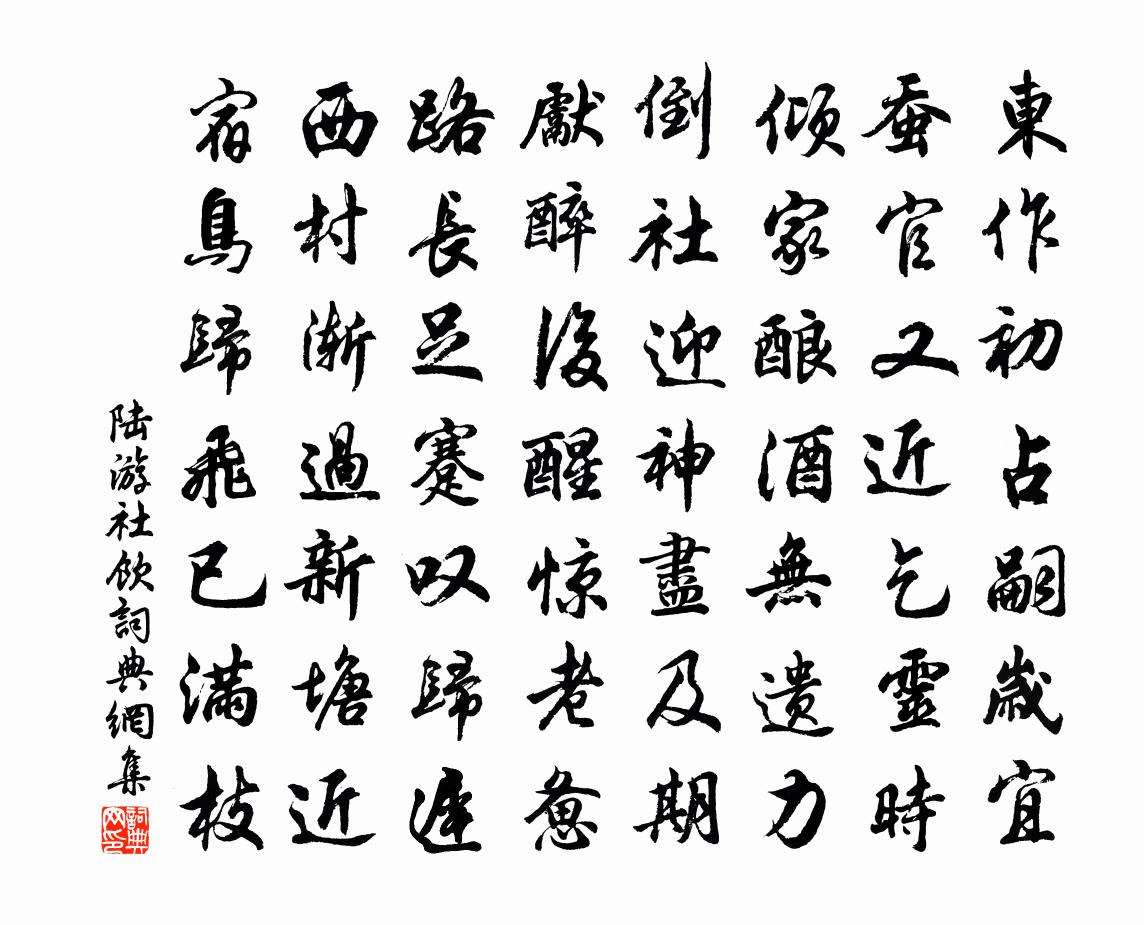 東作初占嗣歳宜
蚕官又近乞靈時
傾家酿酒無遺力
倒社迎神盡及期
獻醉後醒惊老惫
路長足蹇叹歸遲
西村漸過新塘近
宿鳥歸飛已满枝
陆游社飲詞典網集
詞典网印